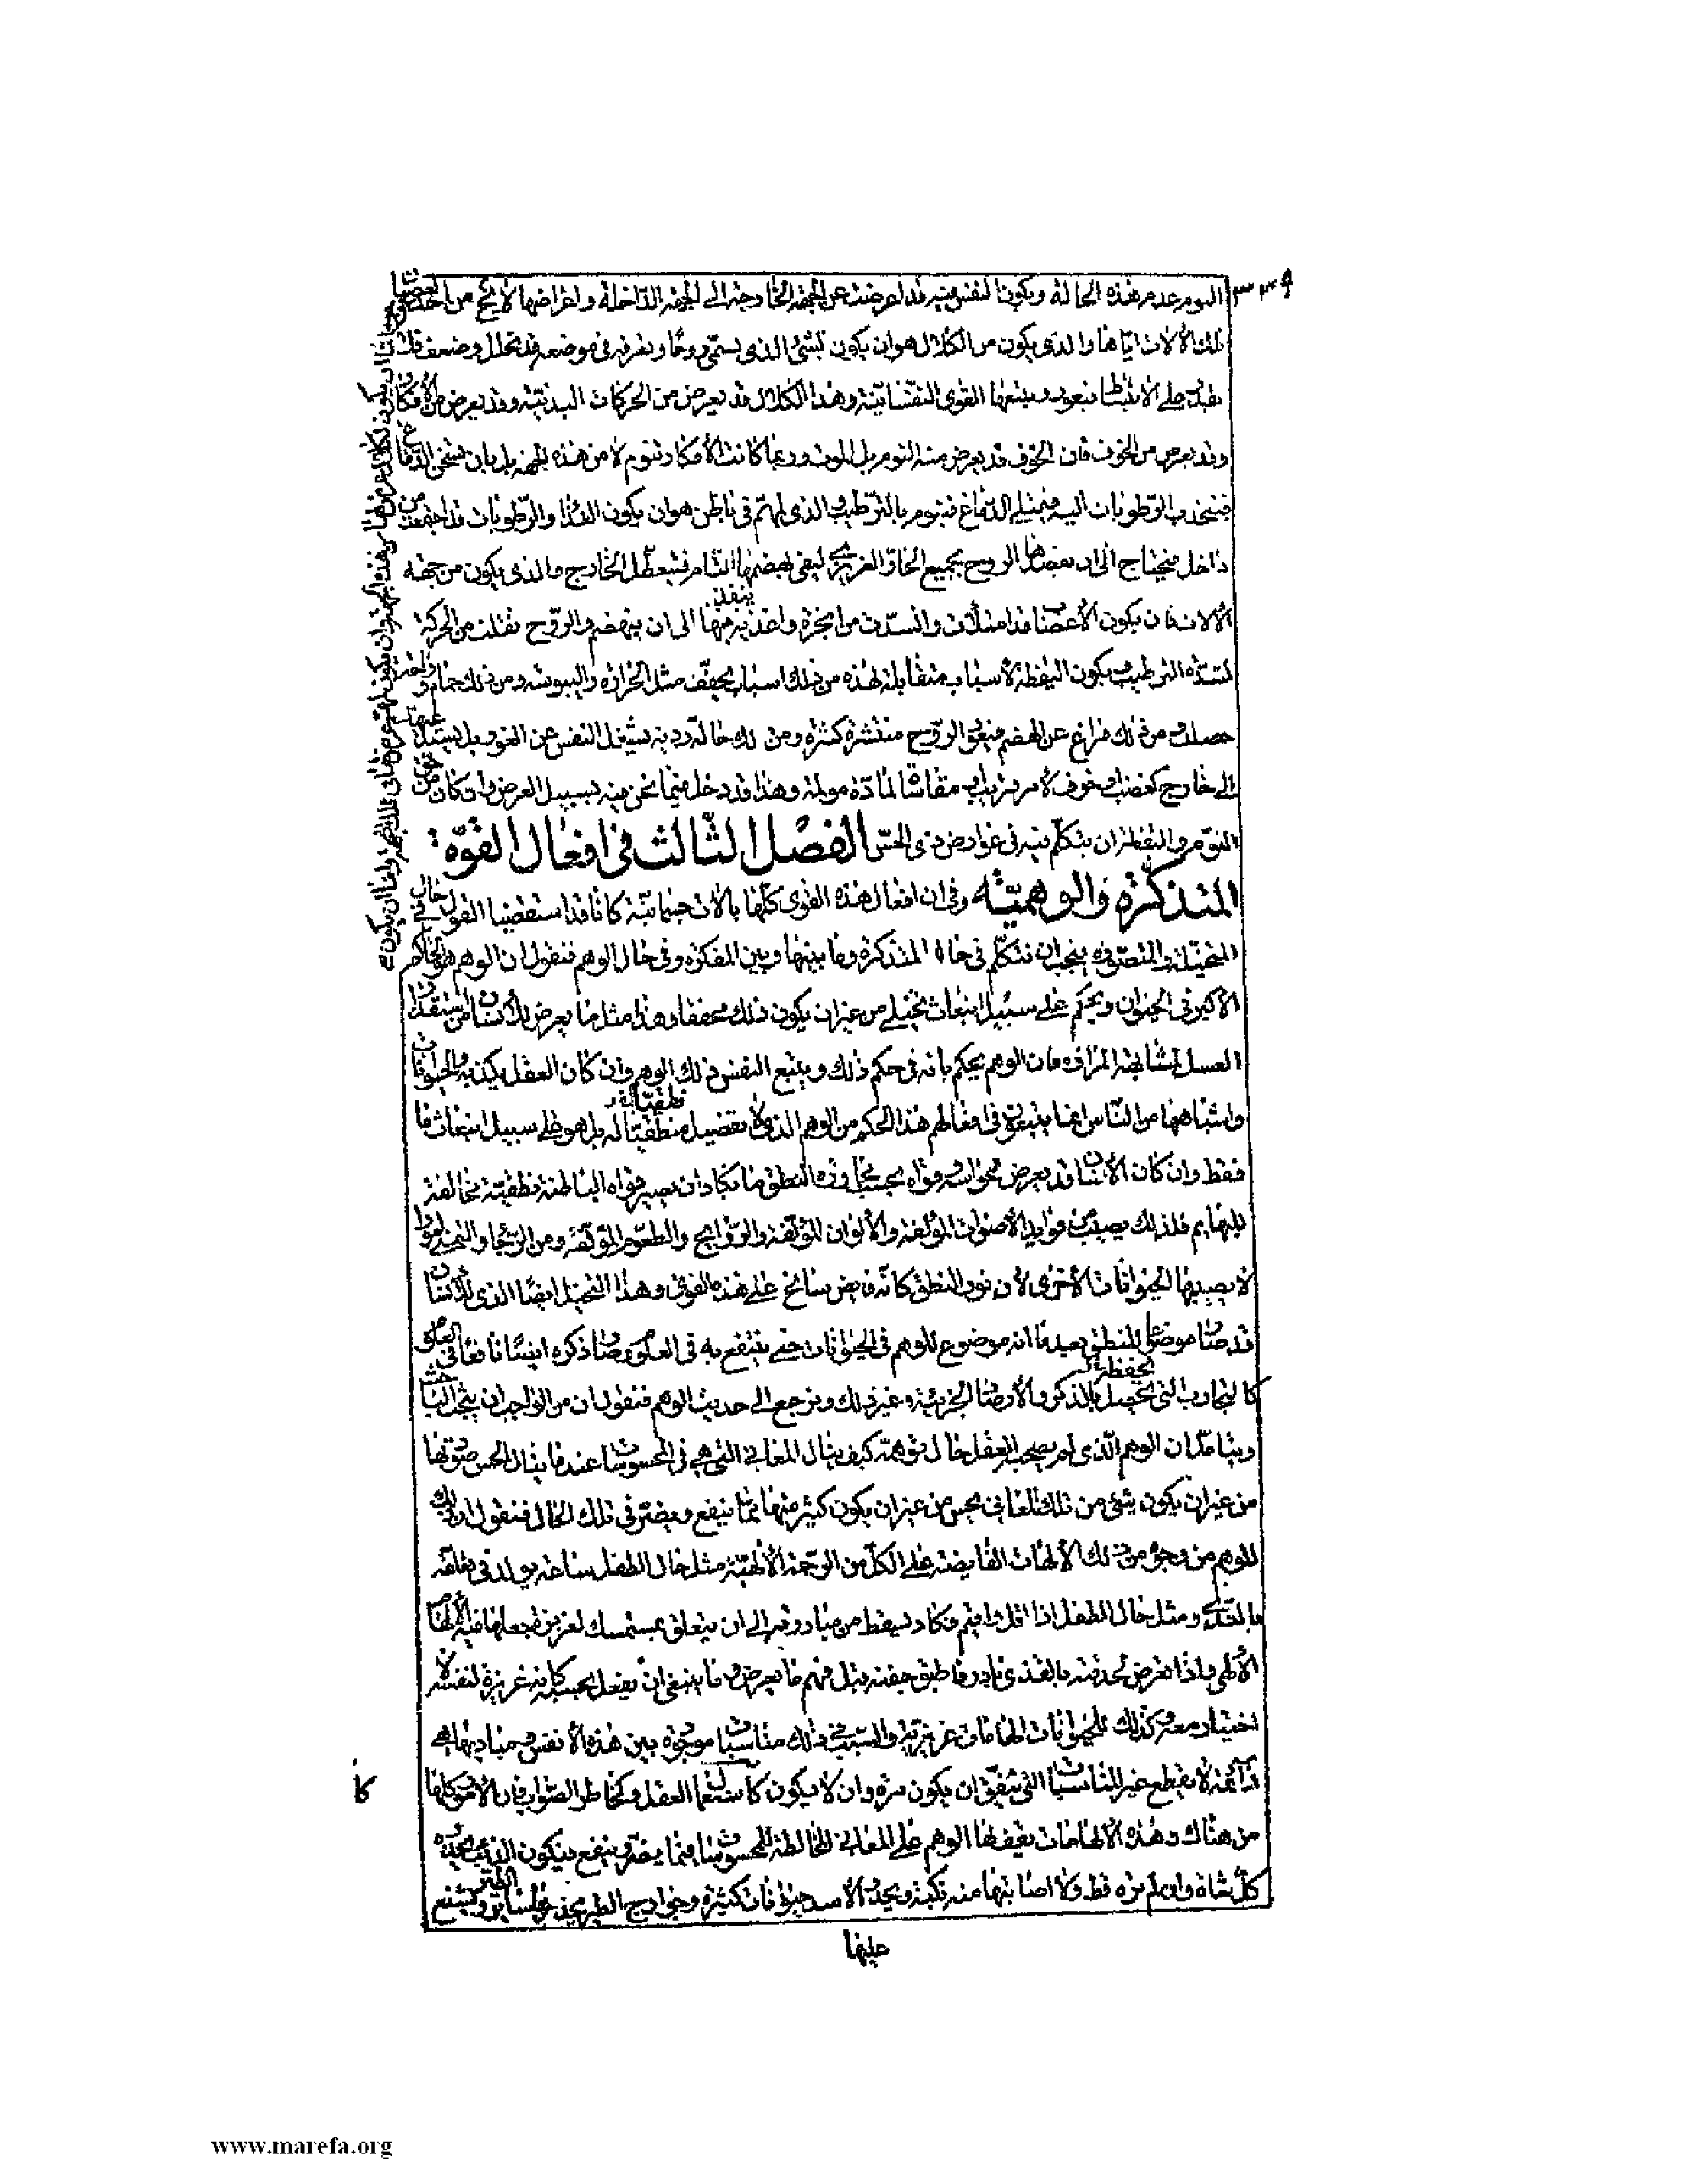 ٣٣٩
النوم عدم هذه الحالة وتكون النفس فيه قد اعرضت عن الجهة الخارجة الى الجهة الداخلة واعراضها لا يخ من احد
تلك الالات اياها والذى يكون من الكلال هو ان يكون الشئ الذى يسمى روحا وتعرفه فى موضعه قد تحلل وضعف فلا
يقدر على الانبساط فيغور ويتبعها القوى النفسانية وهذا الكلال قد يعرض من الحركات البدنية وقد يعرض من الافكار
وقد يعرض من الخوف فان الخوف قد يعرض منه النوم بل الموت وربما كانت الافكار تنوم لا من هذه الجهة بل بان تسخن الدماغ
فينجذب الرطوبات اليه فيمتلى الدماغ فينوم بالترطيب والذى لمهم فى باطن هو ان يكون الغذا والرطوبات قد اجتمعت من
داخل فيحتاج الى ان يقصدها الروح بجميع الحار الغريزى ليفى بهضمها التام فيتعطل الخارج والذى يكون من جهة
الالات فان يكون الاعصاب قد امتلأت وانسدت من ابخرة واغذية ينفذ فيها الى ان ينهضم والروح ثقلت من الحركة
لشدة الترطيب ويكون اليقظة لاسباب متقابلة لهذه من ذلك اسباب يجفف مثل الحرارة واليبوسة ومن ذلك جمام وراحة
حصلت ومن ذلك فراغ عن الهضم فيبقى الروح منتشرة كثيرة ومن ذلك حالة ردية يشغل النفس عن الغور بل يستدعيها
الى خارج كغضب او خوف لامر قريب او مقاساة لمادة مولمة وهذا قد دخل فيما نحن فيه بسبيل العرض وان كان من حق
النوم واليقظة ان يتكلم فيه فى عوارض ذى الحس الفصل الثالث فى افعال القوة
المتذكرة والوهمية وفى ان افعال هذه القوى كلها بالات جسمانية كانا قد استقصينا القول فى حال
المتخيلة والمتصورة فيجب ان نتكلم فى حال المتذكرة وما بينها وبين المفكرة وفى حال الوهم فنقول ان الوهم هو الحاكم
الاكبر فى الحيوان ويحكم على سبيل انبعاث تخيلى من غير ان يكون ذلك محققا وهذا مثل ما يعرض للانسان من استقذار
العسل لمشابهته المرارة فان الوهم يحكم بانه فى حكم ذلك ويتبع النفس ذلك الوهم وان كان العقل يكذبه والحيوانات
واشباهها من الناس انما يتبعون فى افعالهم هذا الحكم من الوهم الذى لا تفصيل منطقيا له بل هو على سبيل انبعاث ما
فقط وان كان الانسان قد يعرض لحواسه وقواه بسبب مجاورة النطق ما يكاد ان يصير قواه الباطنة نطقية مخالفة
للبهايم فلذلك يصيب من فوايد الاصوات المؤلفة والالوان المؤلفة والروايح والطعوم المؤلفة ومن الرجا والتمنى امورا
لا يصيبها الحيوانات الاخرى لان نور النطق كانه فايض سانح على هذه القوى وهذا التخيل ايضا الذى للانسان
قد صار موضوعا للنطق بعد ما انه موضوع للوهم فى الحيوانات حتى ينتفع به فى العلوم وصار ذكره ايضا نافعا فى العلوم
كالتجارب التى تحصل بالذكر والارصاد الجزئية وغير ذلك ونرجع الى حديث الوهم فنقول ان من الواجب ان يبحث الباحث
ويتامل ان الوهم الذى لم يصحبه العقل حال توهمه كيف ينال المعانى التى هى فى المحسوسات عند ما ينال الحس صورتها
من غير ان يكون شئ من تلك المعانى يحس من غير ان يكون كثير منها مما ينفع ويضر فى تلك الحال فنقول ان ذلك
للوهم من وجوه من ذلك الالهامات الفايضة على الكل من الرحمة الالهية مثل حال الطفل ساعة يولد فى تعلقه
بالثدى ومثل حال الطفل اذا اقل واقيم فكاد يسقط من مبادرته الى ان يتعلق بمستمسك لغريزة جعلها فيه الالهام
الالهى واذا تعرض لحدقته بالقذى بادر فاطبق جفنه قبل فهم ما يعرض وما ينبغى ان يفعل بحسبه كانه غريزة لنفسه لا
اختيار معه وكذلك للحيوانات الهامات غريزية والسبب فى ذلك مناسبات موجودة بين هذه الانفس ومباديها هى
دائمة لا ينقطع غير المناسبات التى يتفق ان يكون مرة وان لا يكون كاستكمال العقل وكخاطر الصواب فان الامور كلها
من هناك وهذه الالهامات يقف بها الوهم على المعانى المخالطة للمحسوسات فيما يضر وينفع فيكون الذئب يحذره
كل شاة وان لم تره قط ولا اصابتها منه نكبة ويحذر الاسد حيوانات كثيرة وجوارح الطير يحذرها ساير الطير ويستنع
عليها
www.marefa.org